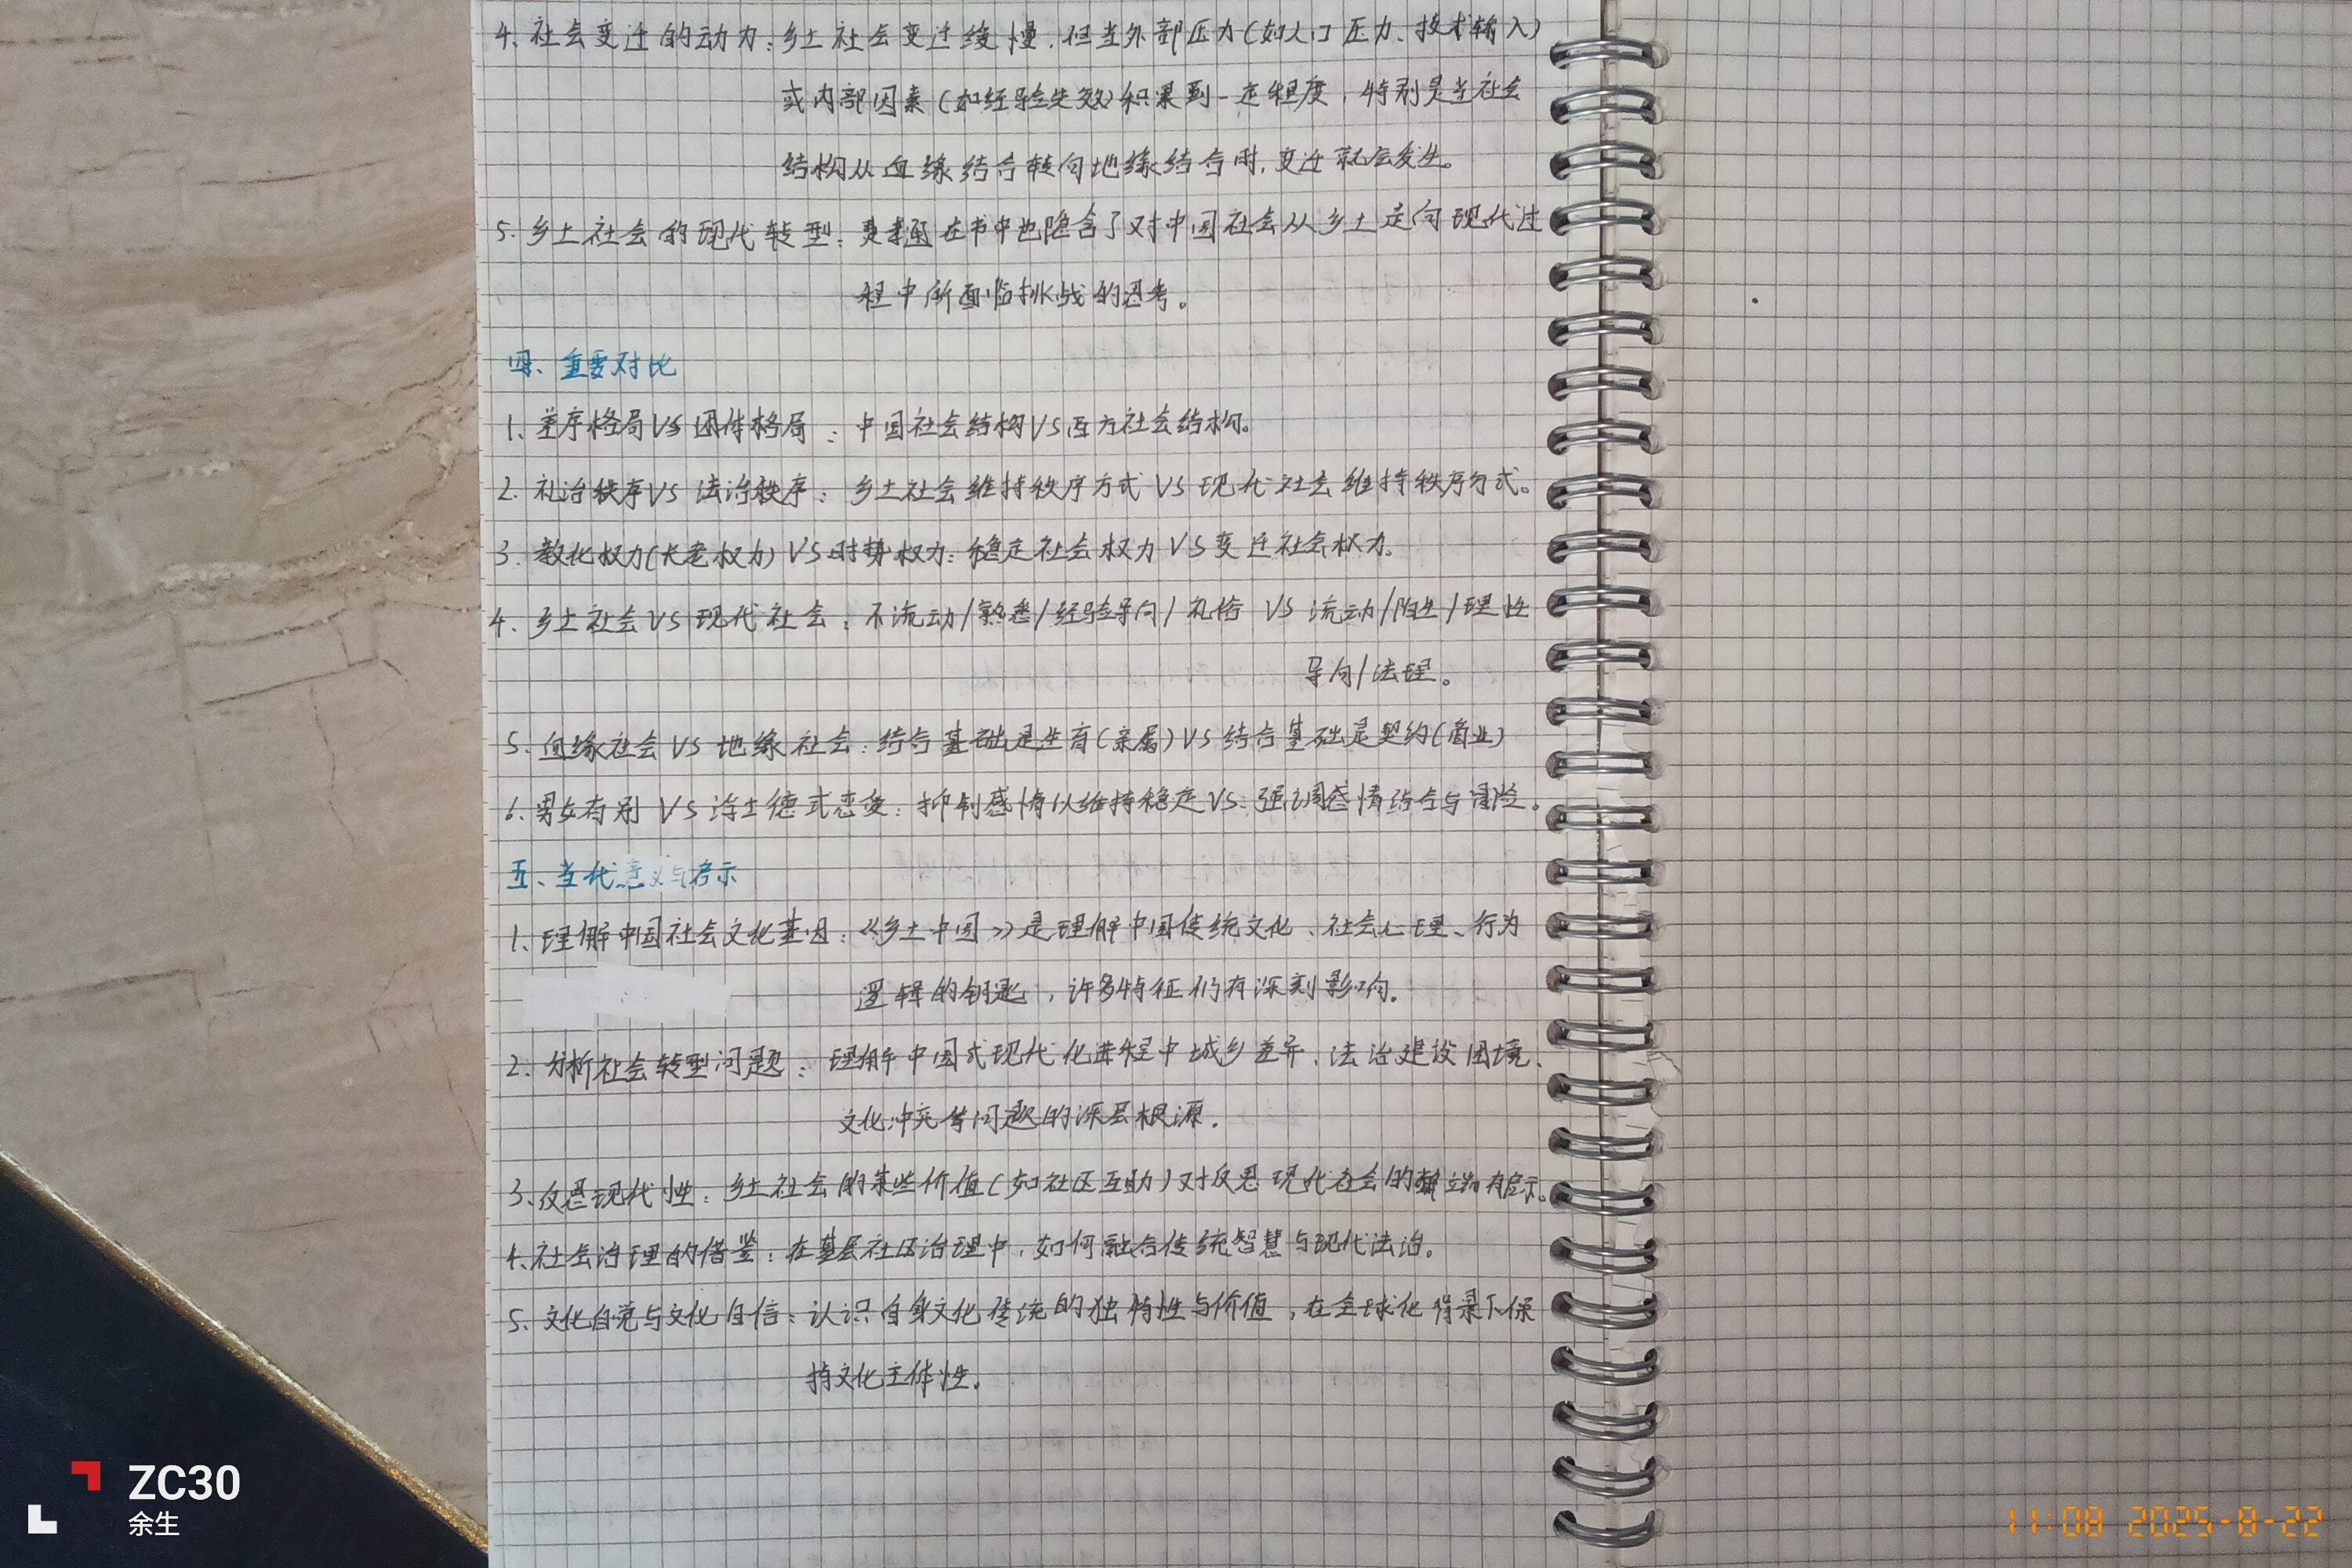 4、社会变迁的动力：乡土社会变迁缓慢，但当外部压力（如人口压力、技术输入）
或内部因素（如经验失效）积累到一定程度，特别是当社会
结构从血缘结合转向地缘结合时，变迁就会发生。
5、乡土社会的现代转型：费孝通在书中也隐含了对中国社会从乡土走向现代过
程中所面临挑战的思考。
四、重要对比
1、差序格局VS团体格局：中国社会结构VS西方社会结构。
2、礼治秩序VS法治秩序：乡土社会维持秩序方式VS现代社会维持秩序方式。
3、教化权力（长老权力）VS时势权力：稳定社会权力VS变迁社会权力。
4、乡土社会VS现代社会：不流动/熟悉/经验导向/礼俗 VS 流动/陌生/理性
导向/法理。
5、血缘社会VS地缘社会：结合基础是生育（亲属）VS结合基础是契约（商业）
6、男女有别 VS 浮士德式恋爱：抑制感情以维持稳定VS强调感情结合与冒险。
五、当代意义与启示
1、理解中国社会文化基因：《乡土中国》是理解中国传统文化、社会心理、行为
逻辑的钥匙，许多特征仍有深刻影响。
2、分析社会转型问题：理解中国式现代化进程中城乡差异、法治建设困境、
文化冲突等问题的深层根源。
3、反思现代性：乡土社会的某些价值（如社区互助）对反思现代社会的弊端有启示。
4、社会治理的借鉴：在基层社区治理中，如何融合传统智慧与现代法治。
5、文化自觉与文化自信：认识自身文化传统的独特性与价值，在全球化背景下保
持文化主体性。
ZC30
余生
11:08 2025-8-22